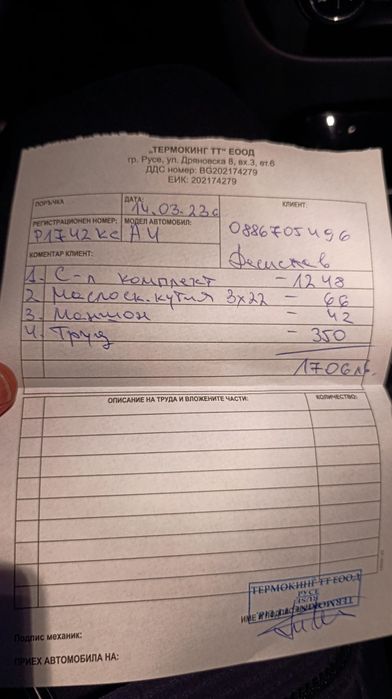 „ТЕРМОКИНГ ТТ“ ЕООД
гр. Русе, ул. Дряновска 8, вх.3, ет.6
ДДС номер: BG202174279
ЕИК: 202174279
ПОРЪЧКА
ДАТА:
14.03.23г
КЛИЕНТ:
РЕГИСТРАЦИОНЕН НОМЕР:
МОДЕЛ АВТОМОБИЛ:
P1742KC
A4
0886705496
КОМЕНТАР КЛИЕНТ:
1. С-л комплект – 1248
2. Маслоск. кутия 3x22 – 66
3. Маншон – 42
4. Труд – 350
1706 лв.
ОПИСАНИЕ НА ТРУДА И ВЛОЖЕНИТЕ ЧАСТИ:
КОЛИЧЕСТВО:
ТЕРМОКИНГ ТТ ЕООД
РУСЕ
RUSE
Подпис механик:
ПРИЕХ АВТОМОБИЛА НА: